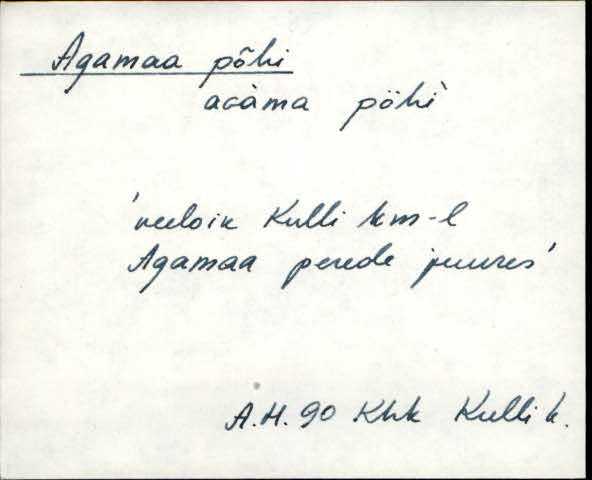 Agamaa põhi
acàma pöhì
'veeloik Kulli km-l
Agamaa perede juures'
A.H. 90 Khk Kulli k.